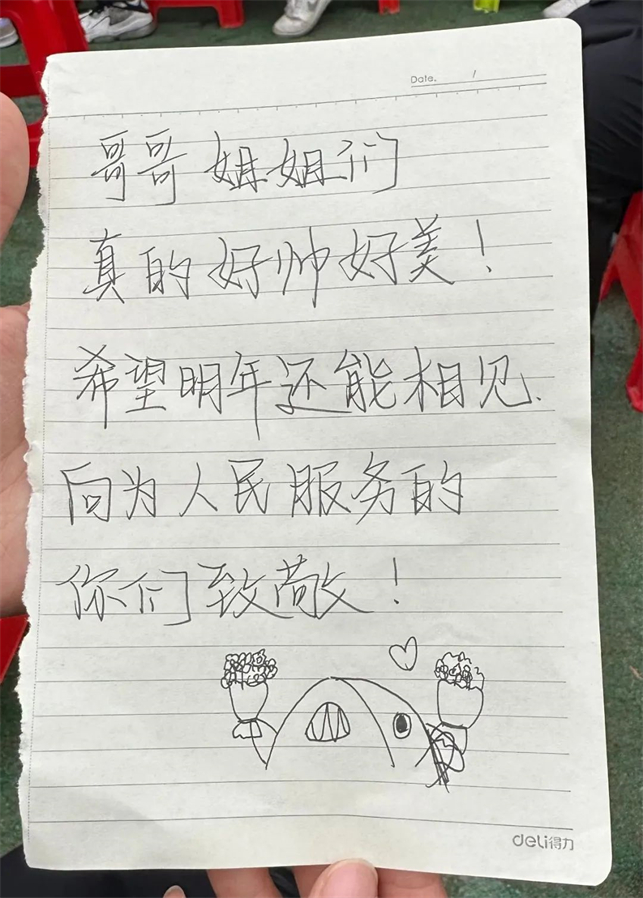 Date. /
哥哥姐姐们
真的好帅好美!
希望明年还能相见.
向为人民服务的
你们致敬!
deli得力